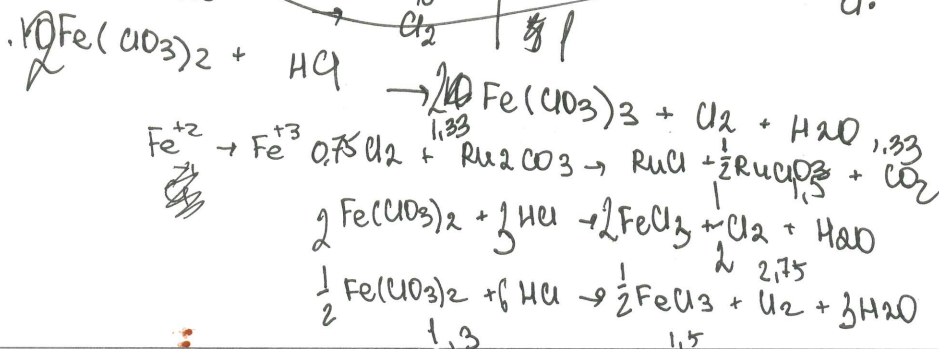 Cl2
2 Fe(ClO3)2 + HCl → Fe(ClO3)3 + Cl2 + H2O
Fe+2 → Fe+3 0,75 Cl2 + 1,33 Ru2CO3 → RuCl + 1/2 RuClO3 + CO2 1,33
1,5
2 Fe(ClO3)2 + 3 HCl → 2 FeCl3 + Cl2 + H2O
2 2,75
1/2 Fe(ClO3)2 + 6 HCl → 1/2 FeCl3 + Cl2 + 3 H2O
1,3 1,5